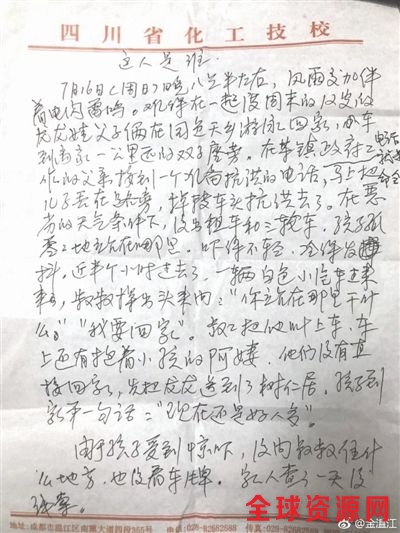 四川省化工技校
这人是谁
7月16日(周日)晚八点半左右,风雨交加伴
着电闪雷鸣。难得在一起度周末的10岁的
龙龙娃父子俩在国色天乡游泳回家,小车
到离家一公里远的双子座旁。在某镇政府工
作的父亲接到一个九江抗洪的电话,马上把
儿子丢在马路旁,掉转车头抗洪去了。在恶
劣的天气条件下,没出租车和三轮车,孩子孤
零零地站在那里,吓得不轻,冷得发
抖,近半个小时过去了,一辆白色小汽车过来
叔叔探出头来问:"你站在那里干什
么?""我要回家"。叔叔把他叫上车,车
上还有抱着小孩的阿姨,他们没有直
接回家,先把龙龙送到了树仁居。孩子到
家第一句话:"现在还是好人多"。
由于孩子受到惊吓,没问叔叔住什
么地方,也没看车牌。家人查了一天没
线索。
地址:成都市温江区南熏大道四段365号
电话:028-82682588
传真:028-8268
全球资源网
@金温江